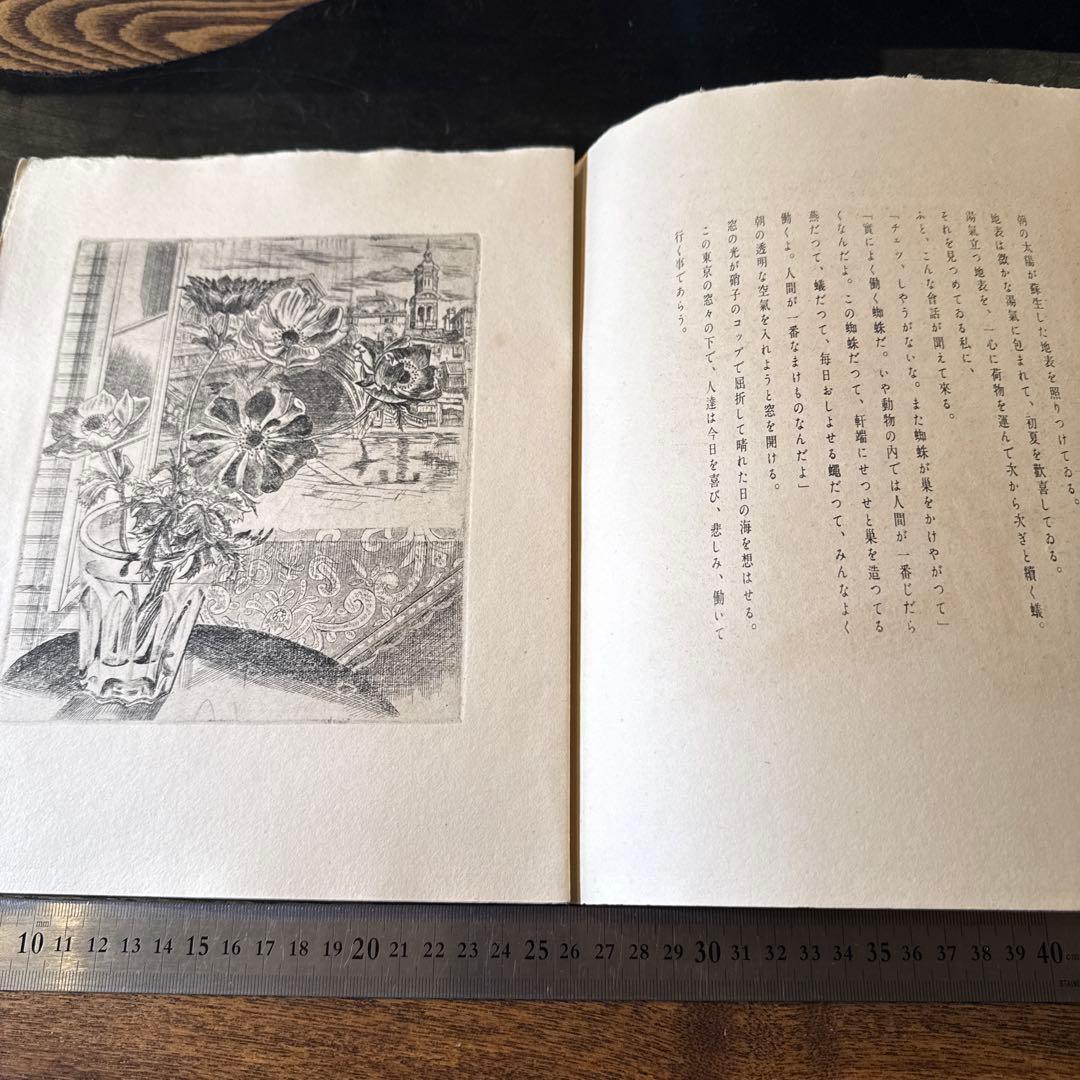 朝の太陽が蘇生した地表を照りつけてゐる。
地表は微かな湯氣に包まれて、初夏を歡喜してゐる。
湯氣立つ地表を、一心に荷物を運んで次から次ぎと續く蟻。
それを見つめてゐる私に、
ふと、こんな會話が聞えて來る。
「チェッ、しやうがないな。また蜘蛛が巢をかけやがつて」
「實によく働く蜘蛛だ。いや動物の内では人間が一番じだら
くなんだよ。この蜘蛛だつて、軒端にせつせと巢を造つてる
燕だつて、蟻だつて、毎日おしよせる蠅だつて、みんなよく
働くよ。人間が一番なまけものなんだよ」
朝の透明な空氣を入れようと窓を開ける。
窓の光が硝子のコップで屈折して晴れた日の海を想はせる。
この東京の窓々の下で、人達は今日を喜び、悲しみ、働いて
行く事であらう。
10 mm 11 12 13 14 15 16 17 18 19 20 21 22 23 24 25 26 27 28 29 30 31 32 33 34 35 36 37 38 39 40 cm